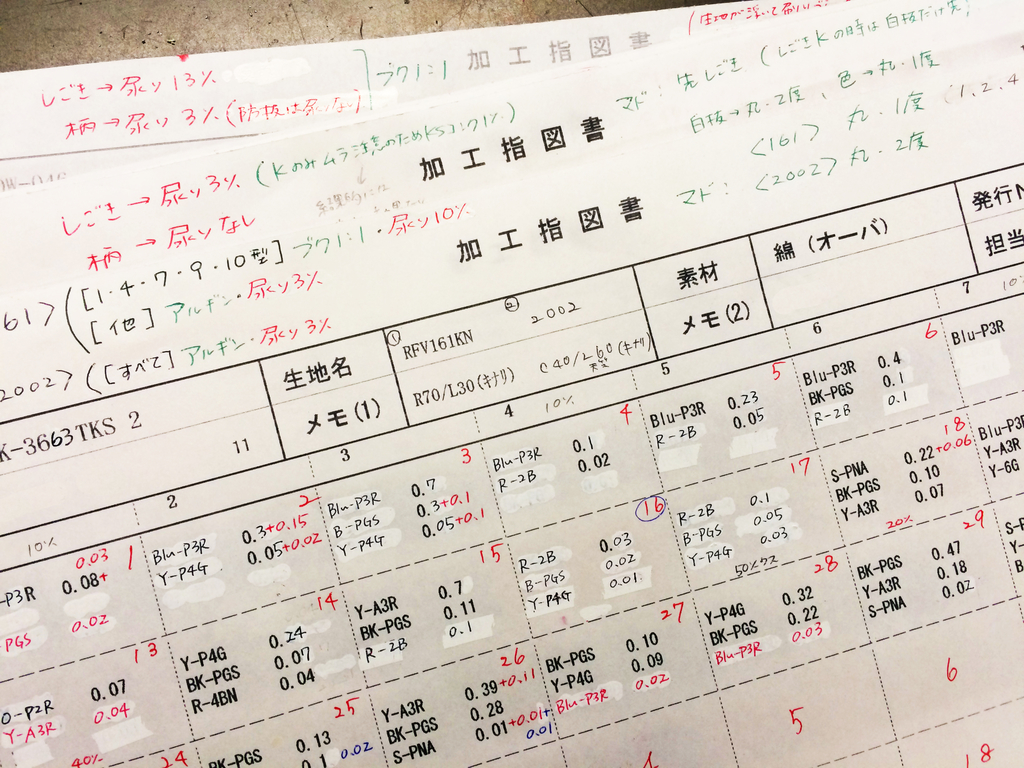 しごき→尿ソ13%
柄→尿ソ3%(防抜は尿なし)
ブク1:1
加工指図書
(Kのみムラ注意のためKSコンク1%)
しごき→尿ソ3%
柄→尿ソなし
加工指図書
マド:先しごき(しごきKの時は白抜だけ先)
白抜→丸・2度、色→丸・1度
<161> 丸・1度 (1.2.4
マド:<2002> 丸・2度
加工指図書
61>([1・4・7・9・10型]ブク1:1・尿ソ10%
[他]アルギン・尿ソ3%
2002>([すべて]アルギン・尿ソ3%
K-3663TKS 2
11
生地名
① RFV161KN ② 2002
メモ(1)
R70/L30(キナリ) C40/260(キナリ)
素材
メモ(2)
綿(オーバ)
発行N
担当
10%
P3R 0.08+0.03 1
PGS 0.02
2
Blu-P3R 0.3+0.15 2
Y-P4G 0.05+0.02
3
Blu-P3R 0.7 3
B-PGS 0.3+0.1
Y-P4G 0.05+0.1
4 10%
Blu-P3R 0.1 4
R-2B 0.02
5
Blu-P3R 0.23 5
R-2B 0.05
6
Blu-P3R 0.4 6
BK-PGS 0.1
R-2B 0.1
7 10%
Blu-P3R
13
O-P2R 0.07
Y-A3R 0.04
14
Y-P4G 0.24
BK-PGS 0.07
R-4BN 0.04
15
Y-A3R 0.7
BK-PGS 0.11
R-2B 0.1
16
R-2B 0.03
B-PGS 0.02
Y-P4G 0.01
17
R-2B 0.1
B-PGS 0.05
Y-P4G 0.03
18
S-PNA 0.22+0.06
BK-PGS 0.10
Y-A3R 0.07
Blu-P3R
Y-A3R
Y-6G
40% 24
25
BK-PGS 0.13
0.1 0.02
26
Y-A3R 0.39+0.11
BK-PGS 0.28
S-PNA 0.01+0.01+0.01
27
BK-PGS 0.10
Y-P4G 0.09
Blu-P3R 0.02
28
Y-P4G 0.32
BK-PGS 0.22
Blu-P3R 0.03
20% 29
BK-PGS 0.47
Y-A3R 0.18
S-PNA 0.02
4
5
6
18